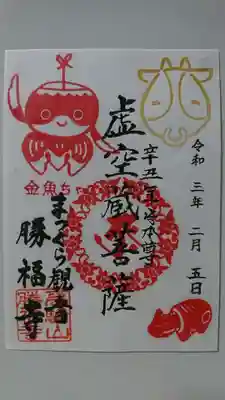 令和三年二月五日
辛丑年守本尊
虚空蔵菩薩
金魚ち
まくら観音
勝福寺